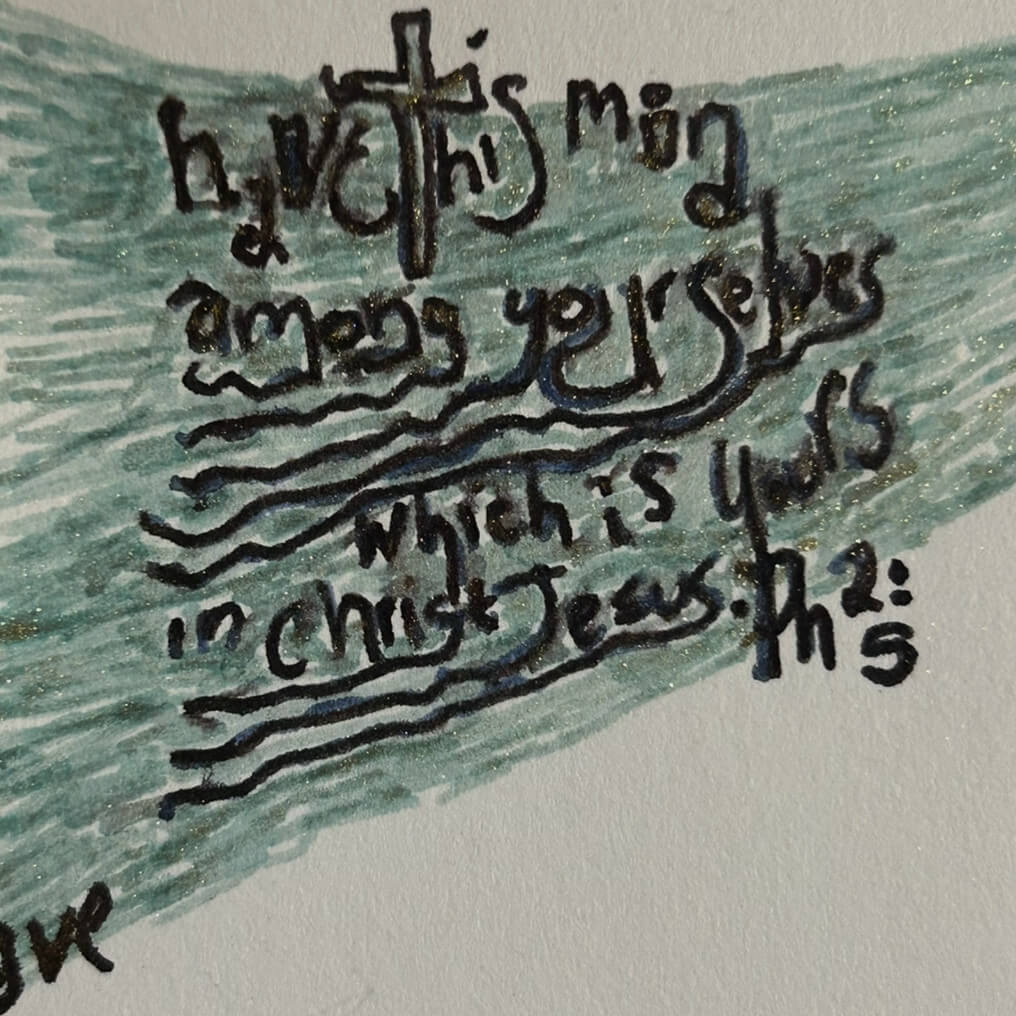 have this mind
among yourselves
which is yours
in Christ Jesus. Ph 2:
5